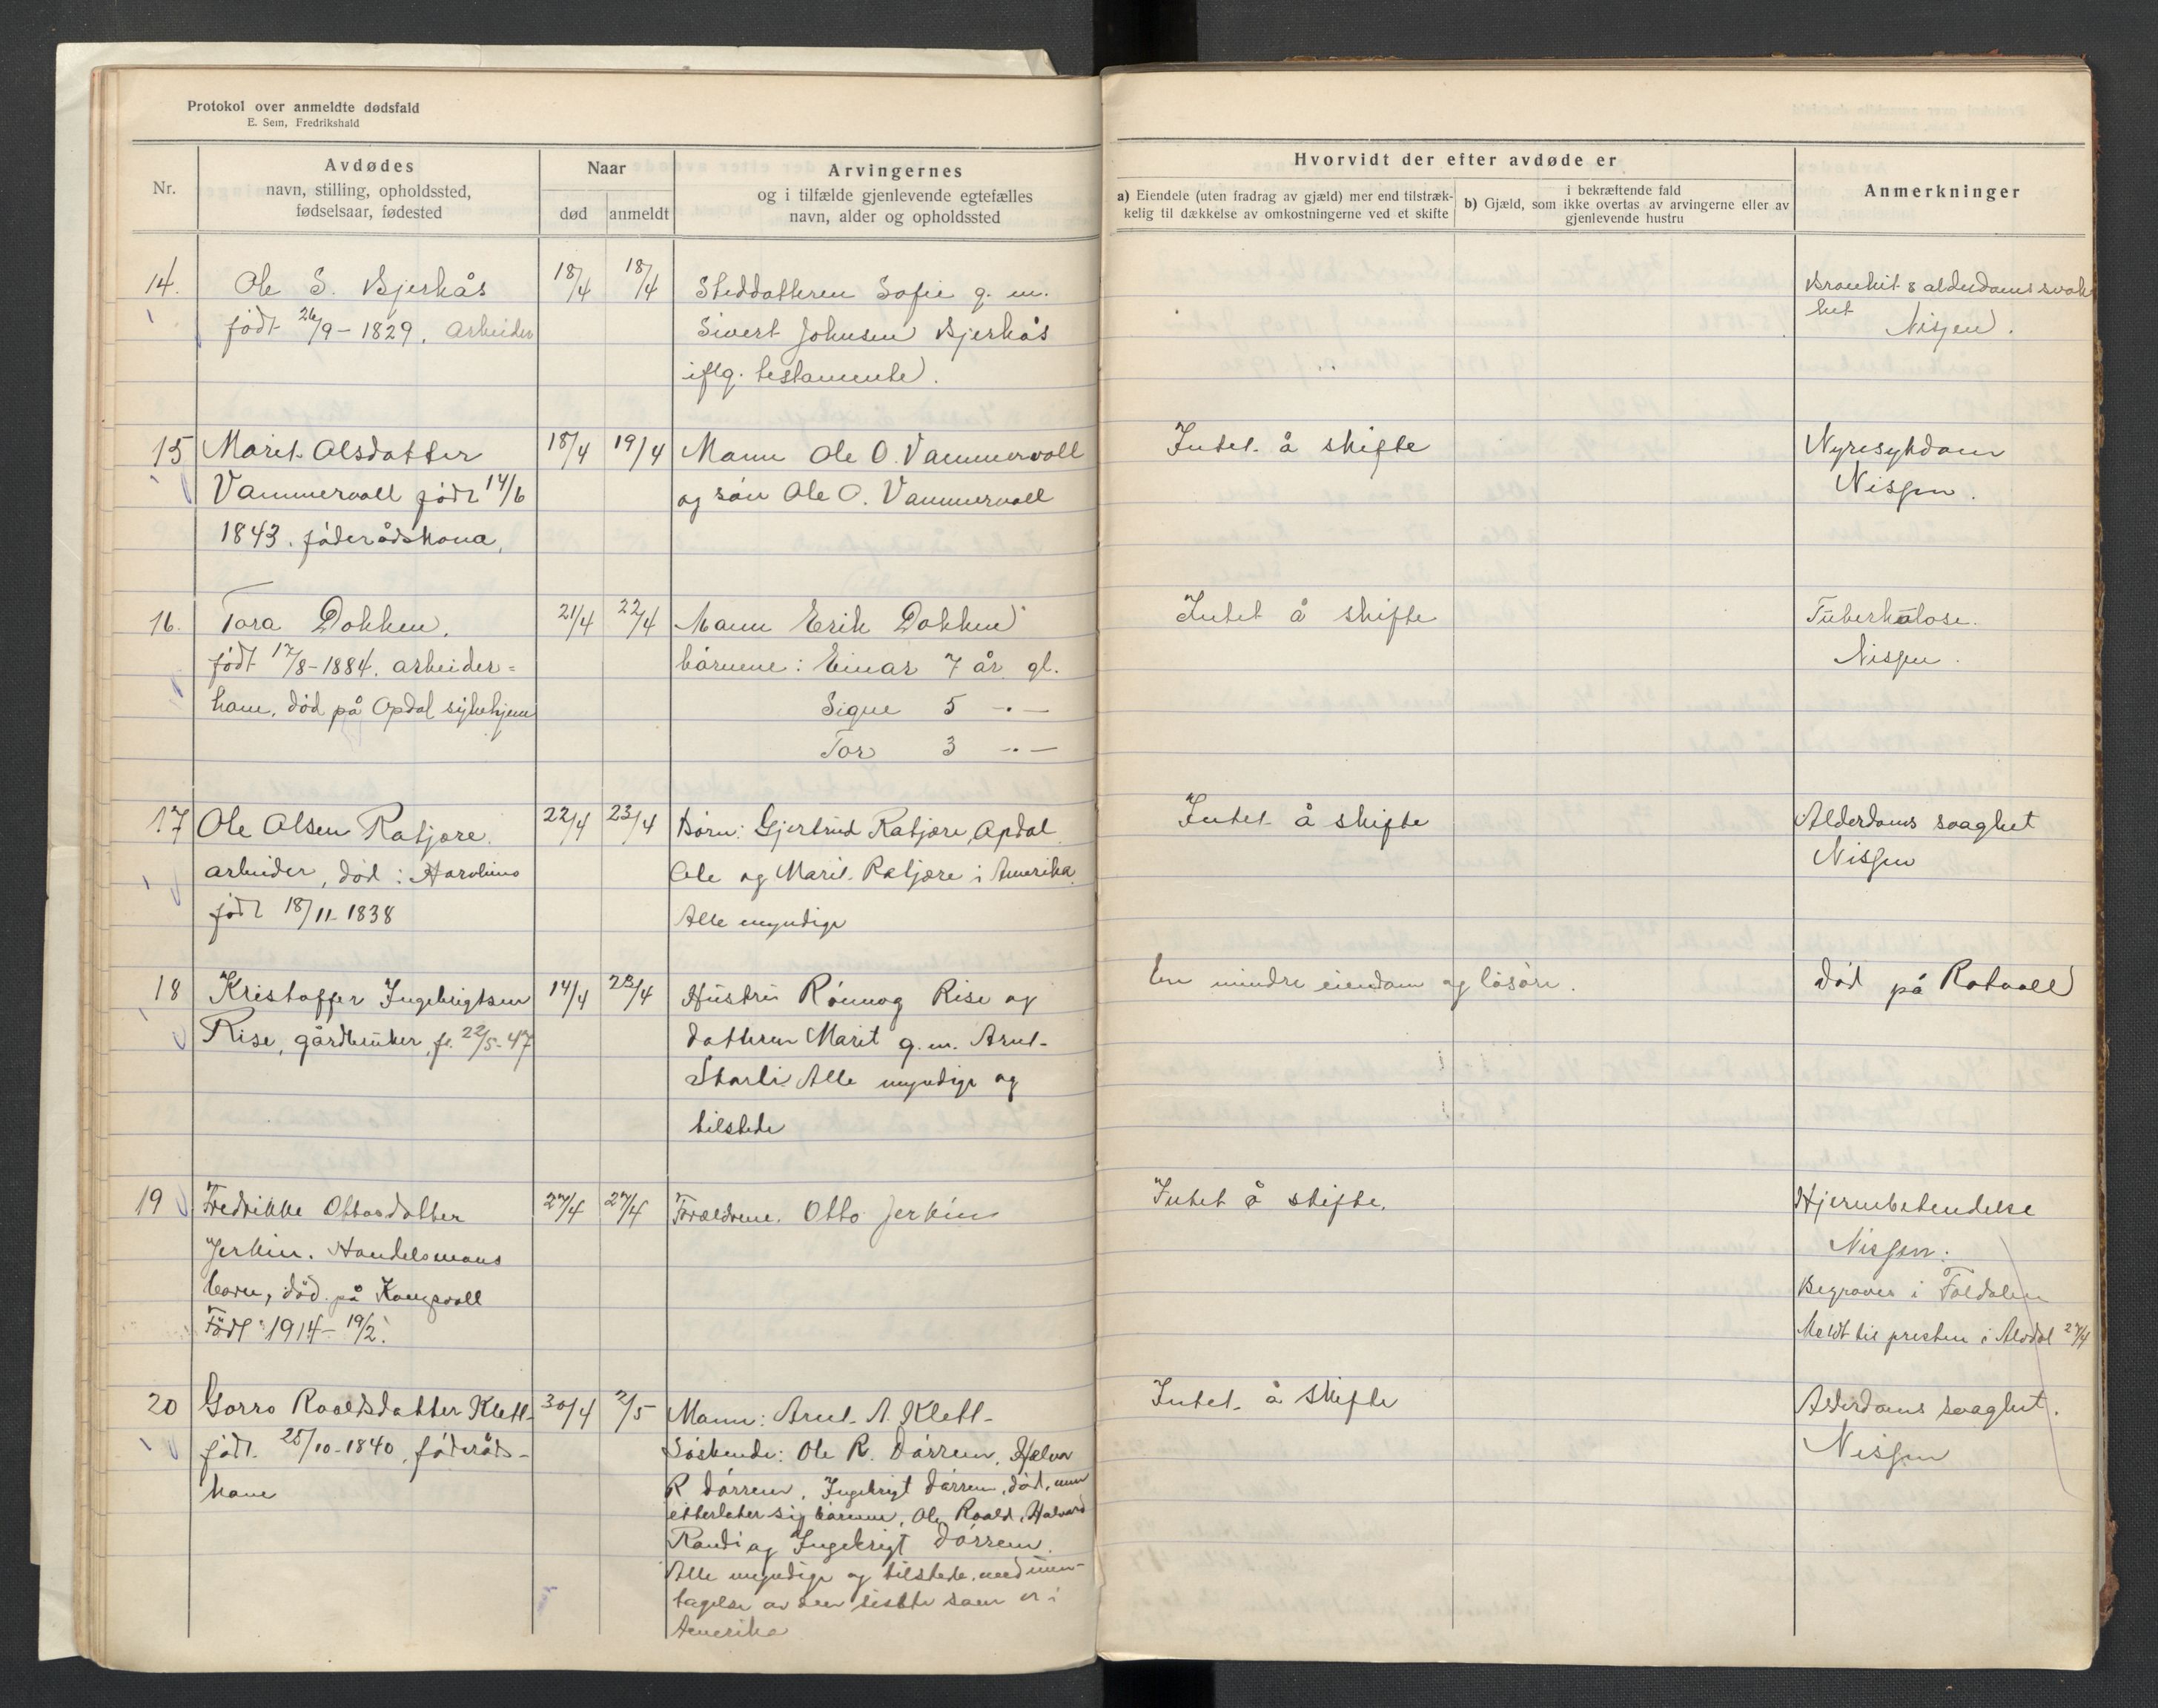 Protokol over anmeldte dødsfald
E. Sem, Fredrikshald
Nr.
Avdødes
navn, stilling, opholdssted,
fødselsaar, fødested
Naar
død
anmeldt
Arvingernes
og i tilfælde gjenlevende egtefælles
navn, alder og opholdssted
Hvorvidt der efter avdøde er
a) Eiendele (uten fradrag av gjæld) mer end tilstræk-
kelig til dækkelse av omkostningerne ved et skifte
i bekræftende fald
b) Gjæld, som ikke overtas av arvingerne eller av
gjenlevende hustru
Anmerkninger
14. Ole S. Bjerkås 18/4 18/4 Steddatteren Sofie g. m. Bronkit & alderdomssvak
født 26/9 - 1829. arbeider Sivert Johnsen Bjerkås het Nisjen.
iflg. testamente.
15 Marit Olsdatter 18/4 19/4 Mann Ole O. Vammervoll Intet å skifte Nyresykdom
Vammervoll født 14/6 og sön Ole O. Vammervoll Nisjen.
1843. föderådskona.
16. Tora Dokken. 21/4 22/4 Mann Erik Dokken Intet å skifte Tuberkulose.
født 17/8 - 1884. arbeider= börnene: Einar 7 år gl. Nisjen.
kone, död på Opdal sykehjem Signe 5 -"-
Tor 3 -"-
17 Ole Olsen Ratjøre. 22/4 23/4 Börn: Gjertrud Ratjøre, Opdal. Intet å skifte Alderdoms svaghet
arbeider, död: Ole og Marit Ratjøre i Amerika. Nisjen
født 18/11 - 1838 Alle myndige
18 Kristoffer Ingebrigtsen 14/4 23/4 Hustru Rönnog Rise og En mindre eiendom og lösöre. död på Rotvoll
Rise, gårdbruker, f. 22/5 - 47 datteren Marit g. m. Arnt
Storli. Alle myndige og
tilstede
19 Fredrikke Ottosdatter 27/4 27/4 Foreldrene. Otto Jerkin Intet å skifte. Hjernebetendelse
Jerkin. Handelsmans Nisjen.
barn, död på Kongsvoll Begraves i Foldalen
Född 1914 - 19/2. Meldt til presten i Alvdal 27/4
20 Gorro Roaldsdatter Klett- 30/4 2/5 Mann: Arnt A. Klett- Intet å skifte Alderdoms svaghet.
født 25/10 - 1840, föderåds- Söskende: Ole R. Dörrem, Halvor Nisjen
kone R Dörrem, Ingebrigt Dörrem, död, men
etterlater sig börnene, Ole, Roald, Halvard
Randi og Ingebrigt Dörrem.
Alle myndige og tilstede, med unn-
tagelse av den sidste som er i
Amerika